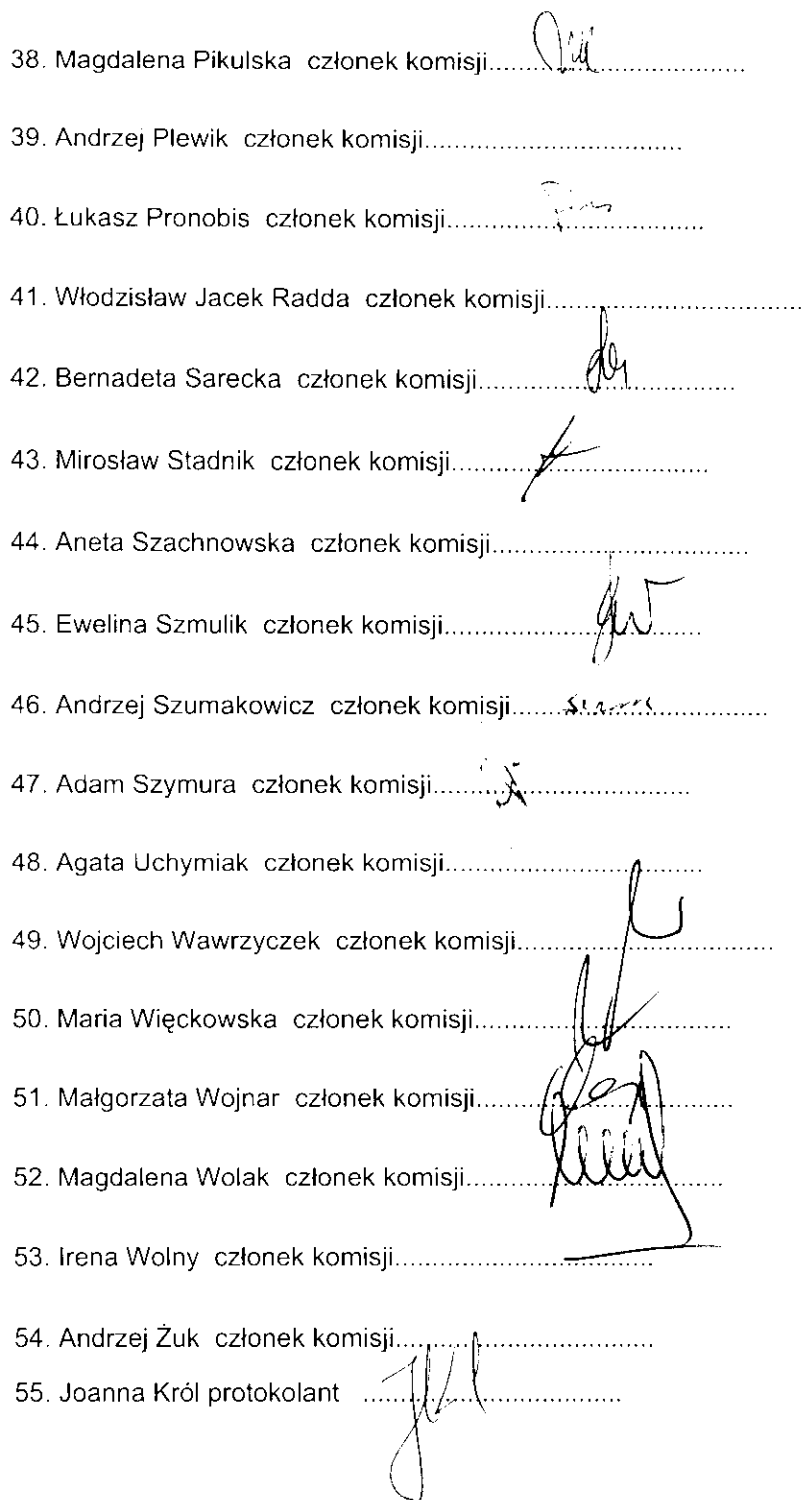 38. Magdalena Pikulska członek komisji.....................................
39. Andrzej Plewik członek komisji.....................................
40. Łukasz Pronobis członek komisji.....................................
41. Włodzisław Jacek Radda członek komisji.....................................
42. Bernadeta Sarecka członek komisji.....................................
43. Mirosław Stadnik członek komisji.....................................
44. Aneta Szachnowska członek komisji.....................................
45. Ewelina Szmulik członek komisji.....................................
46. Andrzej Szumakowicz członek komisji.....................................
47. Adam Szymura członek komisji.....................................
48. Agata Uchymiak członek komisji.....................................
49. Wojciech Wawrzyczek członek komisji.....................................
50. Maria Więckowska członek komisji.....................................
51. Małgorzata Wojnar członek komisji.....................................
52. Magdalena Wolak członek komisji.....................................
53. Irena Wolny członek komisji.....................................
54. Andrzej Żuk członek komisji.....................................
55. Joanna Król protokolant .....................................